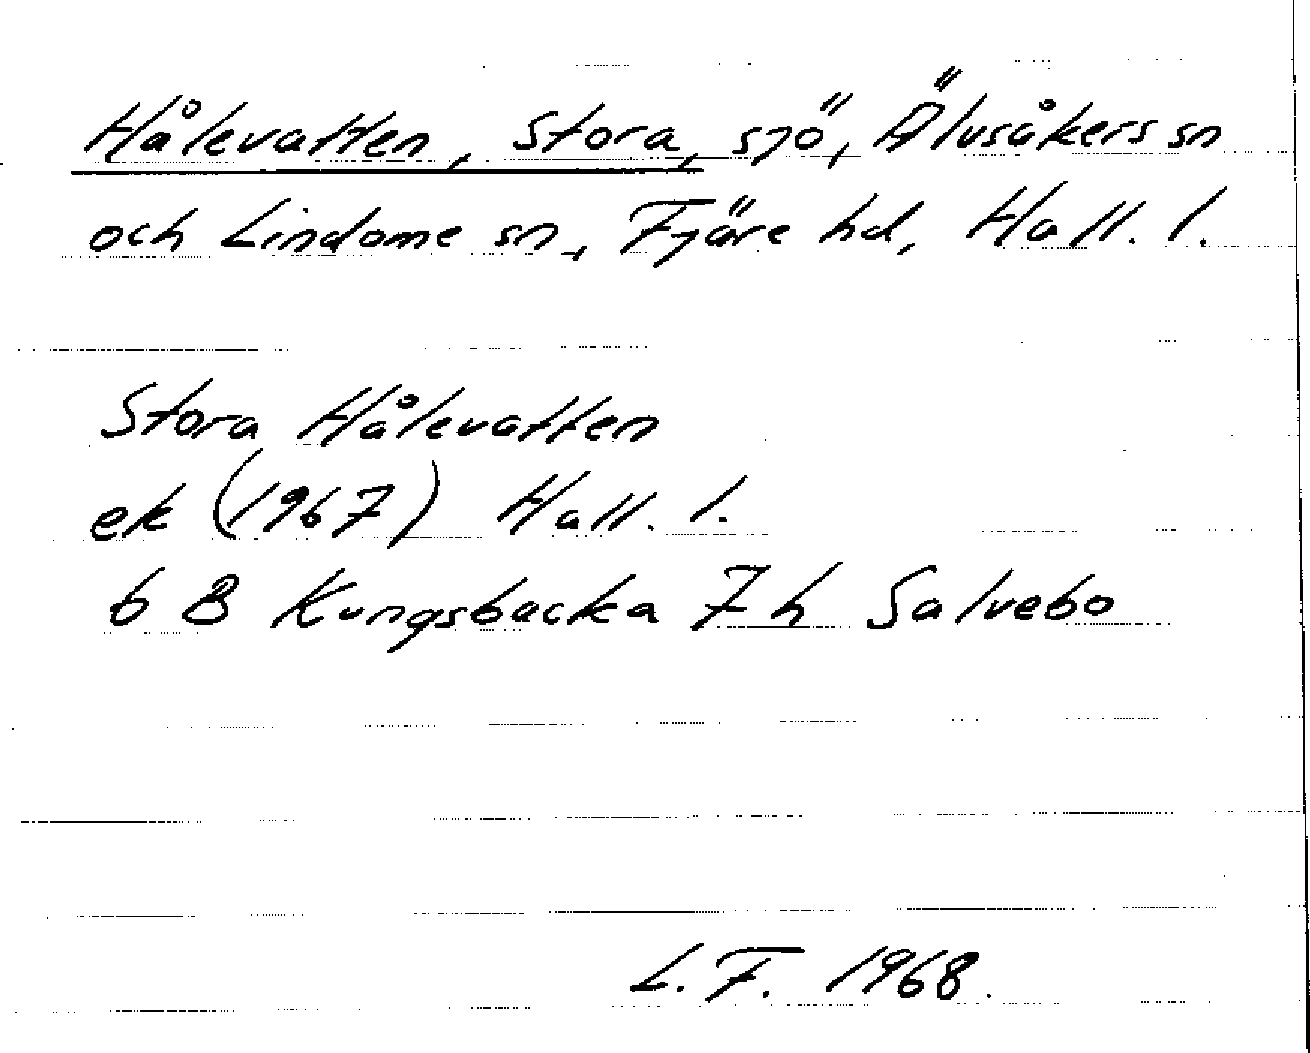 Hålevatten, Stora, sjö, Älvsåkers sn
och Lindome sn, Fjäre hd, Hall. l.
Stora Hålevatten
ek (1967) Hall. l.
6 B Kungsbacka 7 h Salvebo
L. F. 1968.